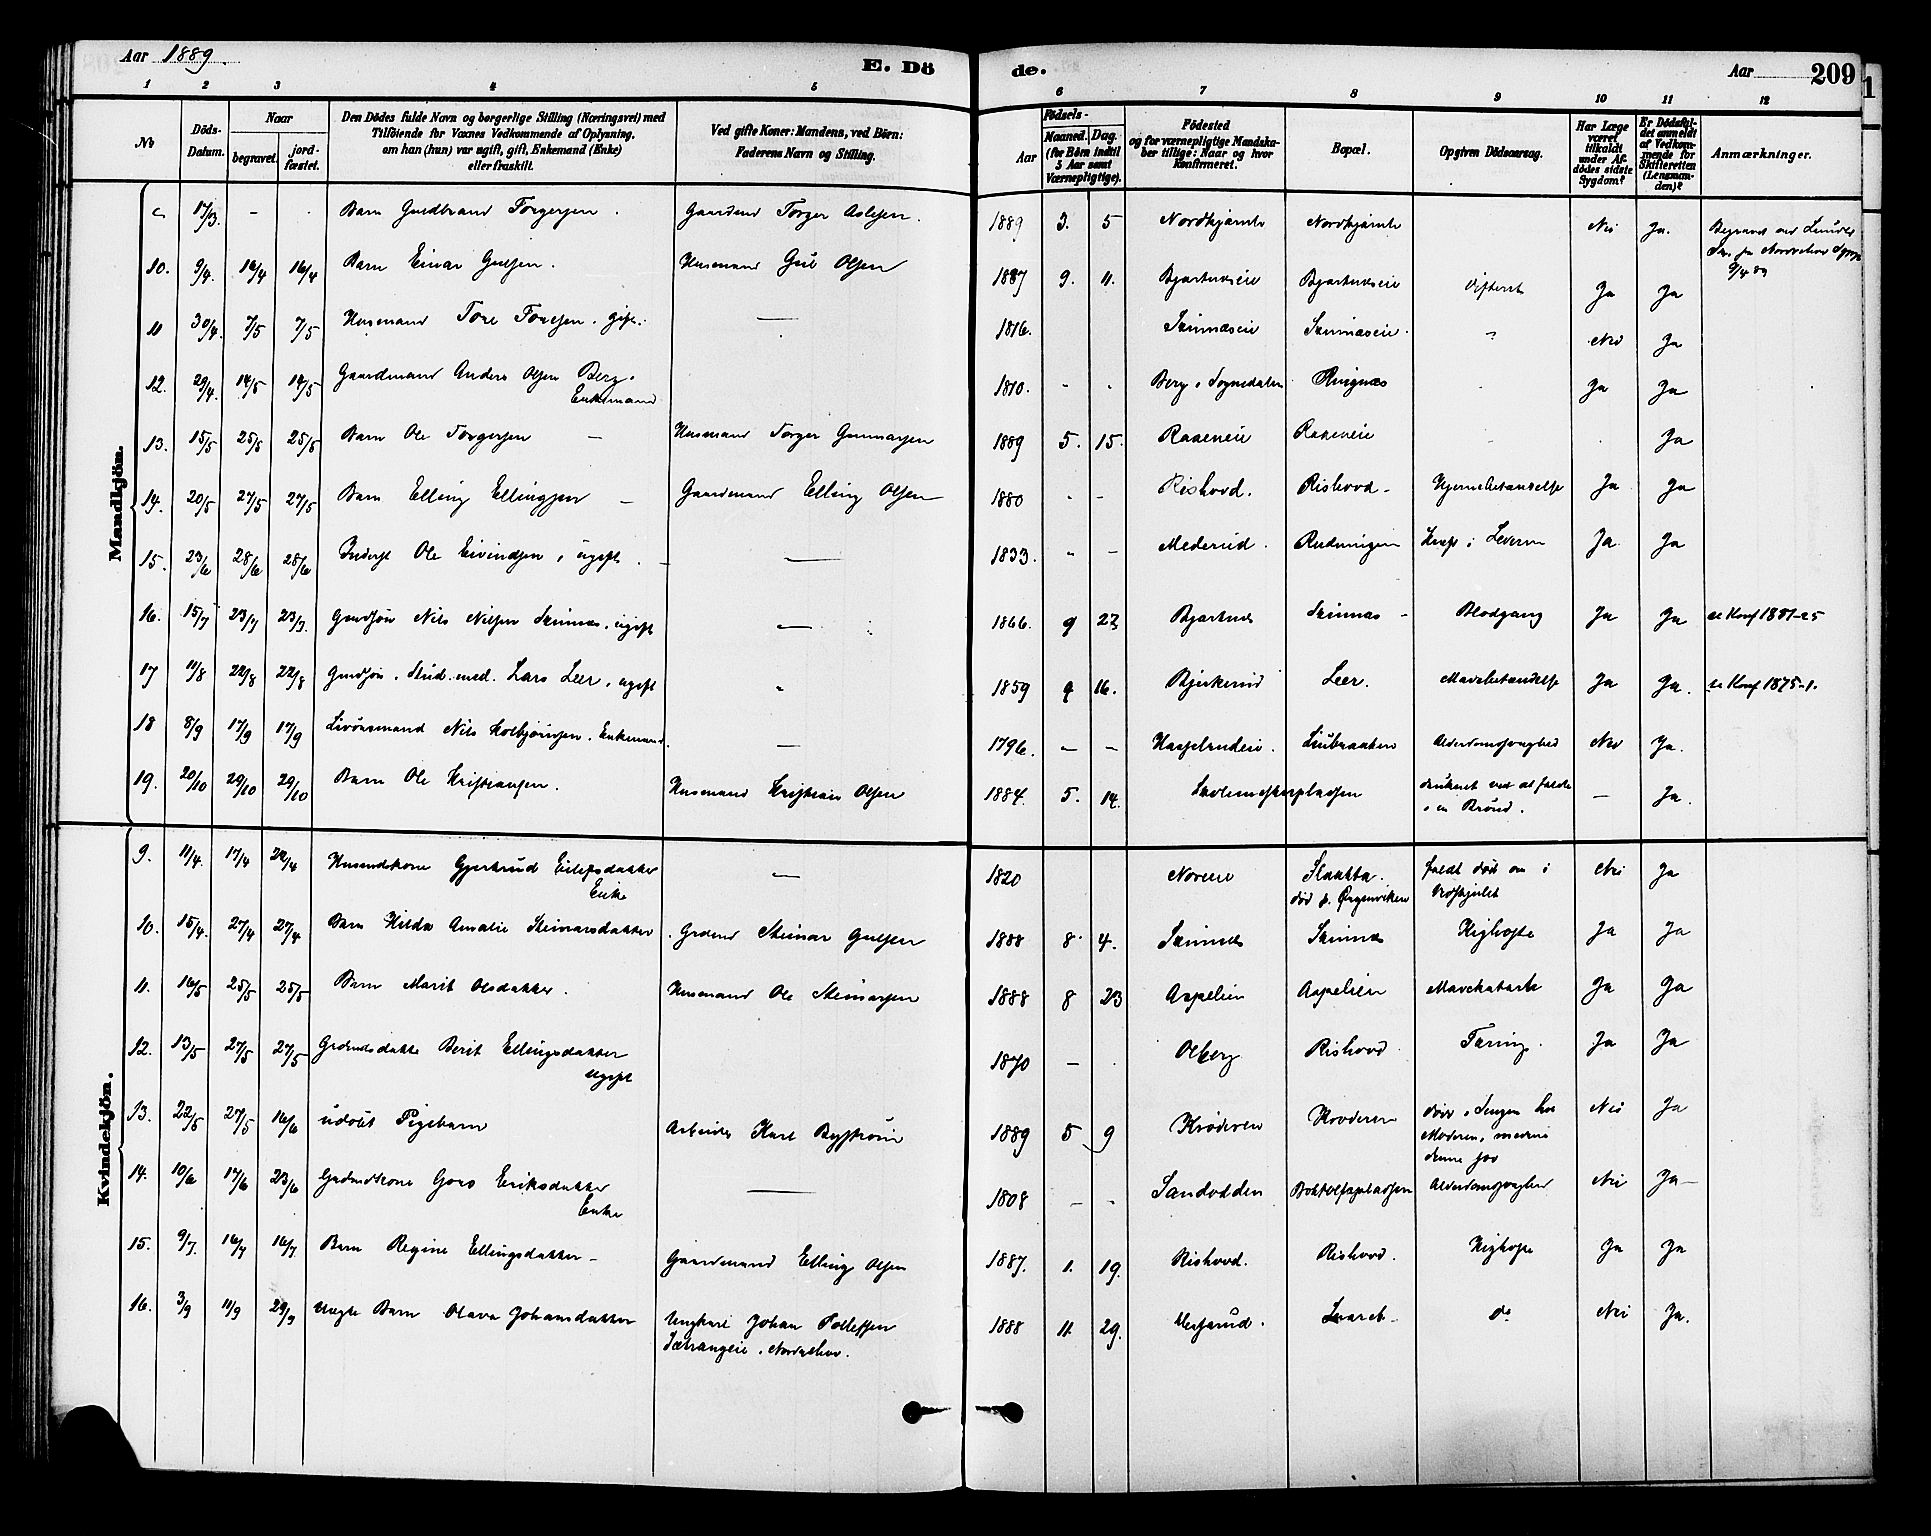 Aar 1889.
E. Dö
de.
Aar
209
1 2 3 4 5 6 7 8 9 10 11 12
No
Döds-Datum.
Naar
begravet.
jord-fæstet.
Den Dödes fulde Navn og borgerlige Stilling (Næringsvei) med
Tilföiende for Voxnes Vedkommende af Oplysning,
om han (hun) var ugift, gift, Enkemand (Enke)
eller fraskilt.
Ved gifte Koner: Mandens, ved Börn:
Faderens Navn og Stilling.
Födsels-
Aar
Maaned. Dag.
(for Börn indtil
5 Aar samt
Værnepligtige).
Födested
og for værnepligtige Mandska-
ber tillige: Naar og hvor
Konfirmeret.
Bopæl.
Opgiven Dödsaarsag.
Har Læge
været
tilkaldt
under Af-
dödes sidste
Sygdom?
Er Dödsfal-
det anmeldt
af Vedkom-
mende for
Skifteretten
(Lensman-
den)?
Anmærkninger.
Mandkjön.
17/3 - Barn Gudbrand Torgersen. Gaardmd Torger Aslesen. 1889 3. 5 Nordhjømle Nordhjømle Nei Ja.
10. 9/4. 16/4 16/4 Barn Einar Gulsen. Husmand Gul Olsen 1887 9. 11. Bjertneseie Bjertneseie Difterit Ja Ja
11 30/4. 7/5 7/5 Husmand Tore Toresen. gift. — 1816. Skinneseie Skinneseie. " Nei Ja
12. 29/4. 14/5 14/5 Gaardmand Anders Olsen Berg. Enkemand 1810. - - Berg i Sognedalen Ringnæs Ja Ja
13. 15/5 25/5 25/5 Barn Ole Torgersen — Husmand Torger Gunnarsen 1889 5. 15. Raaeneie Raaeneie Ja
14. 20/5 27/5 27/5 Barn Elling Ellingsen — Gaardmand Elling Olsen 1880 - - Rishovd. Rishovd - Hjernebetændelse Ja Ja
15. 23/6 28/6 28/6 Inderst Ole Eivindsen, ugift. — 1833. - - Mederud. Rudningen Kræft i Leveren Ja Ja
16. 15/7 23/7 23/7. Grdsøn Nils Nilsen Skinnes, ugift — 1866. 9 22 Bjertnes Skinnes - Blodgang Ja Ja se Konf 1881-25
17 11/8 22/8 22/8 Grdsøn, Stud. med. Lars Leer, ugift " 1859 9 16. Bjerkerud Leer. Mavebetændelse Ja Ja. se Konf 1875-1.
18 8/9 17/9 17/9 Livøresmand Nils Kolbjørnsen. Enkemand. — 1796. — — Hasselrudeie. Lindbraaten Alderdomssvaghed Nei Ja.
19. 20/10 29/10 29/10 Barn Ole Kristiansen. Husmand Kristian Olsen 1884. 5. 14. Skolemesterpladsen druknet ved at falde i en Brønd. — Ja.
Kvindekjön.
9. 11/4. 17/4 Husmdskone Gjertrud Eilefsdatter Enke — 1820 Noreeie Slaatta. død p. Ørgenviken faldt død om i Vedskjulet Nei Ja
10. 15/4. 27/4 27/4 Barn Hilda Amalie Steinarsdatter. Grdmd Steinar Gulsen 1888 8. 4. Skinnes Skinnes Kighoste Ja Ja
11. 16/5 25/5 25/5 Barn Marit Olsdatter. Husmand Ole Steinarsen 1888 8 23 Aspelien Aspelien Mavekatarh Ja Ja
12. 13/5 27/5 27/5 Grdmdsdatter Berit Ellingsdatter ugift 1870 — . Olberg Rishovd Tæring. Ja Ja
13. 22/5 27/5 16/6 udøbt Pigebarn Arbeider Karl Bystrøm 1889 5 9 Krøderen Krøderen døde i Sengen hos Moderen, medens denne sov Nei Ja
14. 10/6 17/6 23/6 Grdmdskone Goro Eriksdatter Enke — 1808 — - Sandodden Alderdomssvaghed Nei Ja —
15. 9/7. 16/7 16/7. Barn Regine Ellingsdatter - Gaardmand Elling Olsen 1887. 1. 19. Rishovd. Rishovd. Kighoste Ja Ja
16. 3/9 11/9 29/9 Uægte Barn Olava Johansdatter Ungkarl Johan Pollefsen Sætrangeie, Norderhov. 1888 11. 29. do Nei Ja.